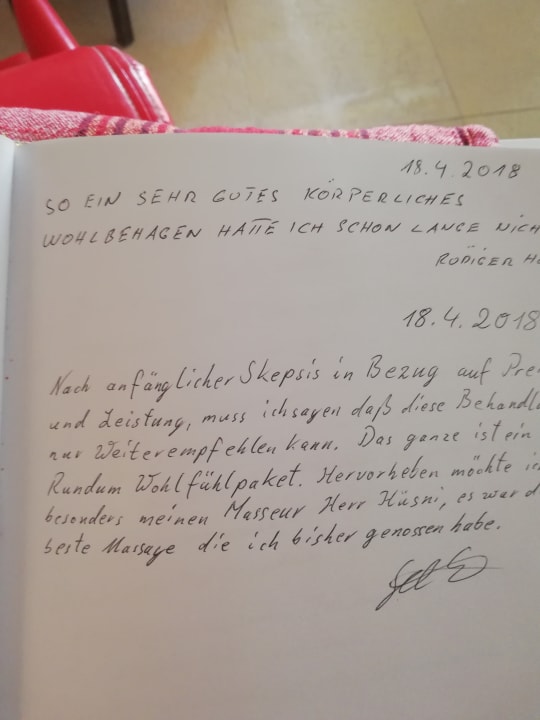 18.4.2018
SO EIN SEHR GUTES KÖRPERLICHES
WOHLBEHAGEN HATTE ICH SCHON LANGE
RÜDIGER
18.4.2018
Nach anfänglicher Skepsis in Bezug auf
und Leistung, muss ich sagen daß diese
nur Weiterempfehlen kann. Das ganze ist ein
Rundum Wohlfühlpaket. Hervorheben möchte
besonders meinen Masseur Herr Hüsni, es war
beste Massage die ich bisher genossen habe.